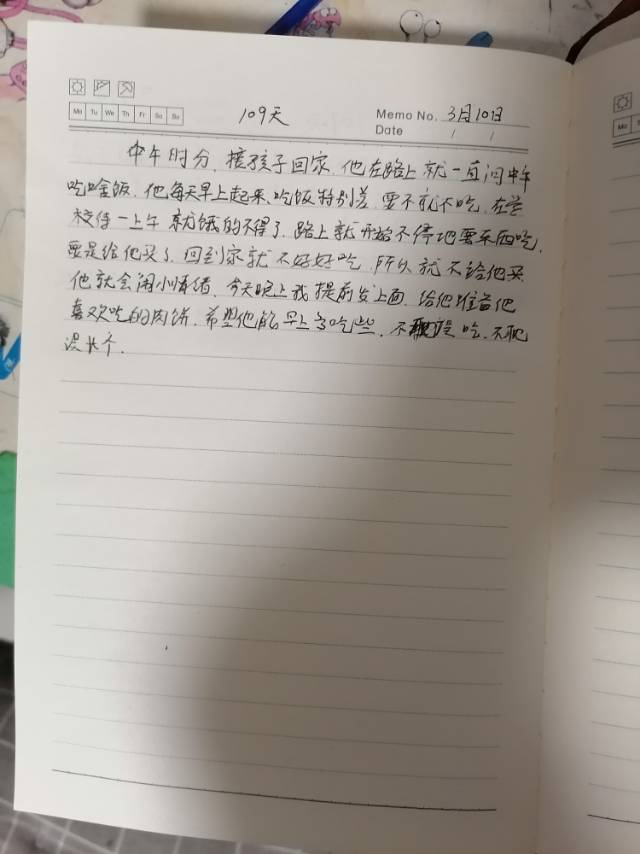 109天
Memo No. 3月10日
Mo Tu We Th Fr Sa Su
Date / /
中午时分，接孩子回家，他在路上就一直问中午
吃啥饭，他每天早上起来，吃饭特别差，要不就不吃，在学
校待一上午就饿的不得了，路上就开始不停地要东西吃，
要是给他买了，回到家就不好好吃，所以就不给他买，
他就会闹小情绪，今天晚上我提前发上面，给他准备他
喜欢吃的肉饼，希望他能早上多吃些，不吃
没长个。
Mo